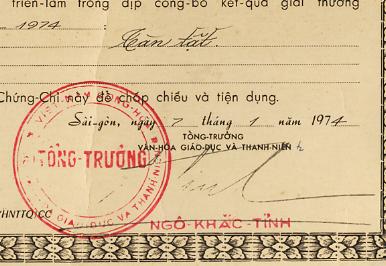 triển-lãm trong dịp công-bố kết-quả giải thưởng
1974 :
Chứng-Chỉ này để chấp chiếu và tiện dụng.
Sài-gòn, ngày 7 tháng 1 năm 1974
TỔNG-TRƯỞNG
VĂN-HÓA GIÁO-DỤC VÀ THANH-NIÊN
TỔNG-TRƯỞNG
GIÁO-DỤC VÀ THANH-NIÊN
/HNTTQ/CC
NGÔ-KHẮC-TỈNH